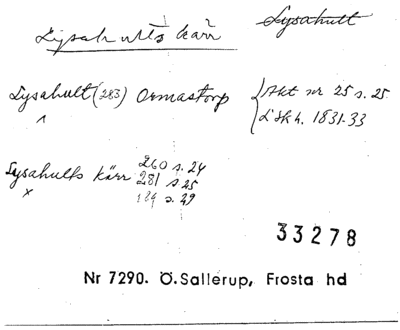 Lysahults kärr
Lysahult
Lysahult (283) Ormastorp
Akt nr 25 s. 25
L sk h. 1831-33
Lysahults kärr
260 s. 24
281 s 25
184 s. 29
33278
Nr 7290. Ö.Sallerup, Frosta hd